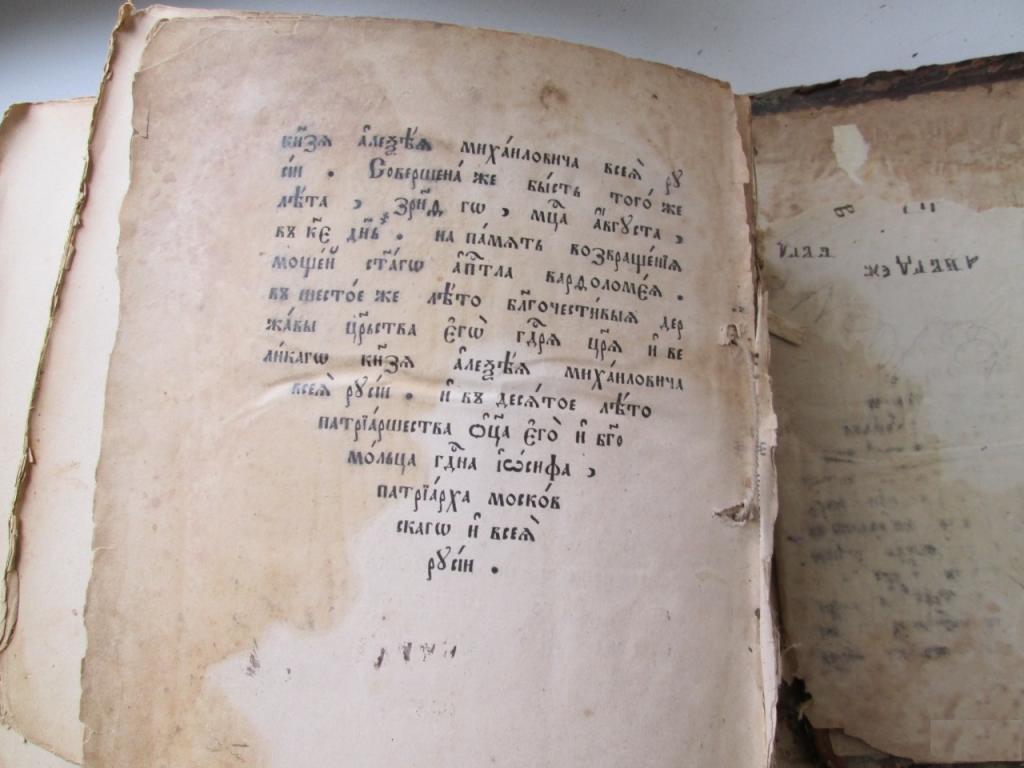 кн҃зѧ а҆леѯѣ́ѧ михаи́ловича всеѧ̀ рꙋ
сі́и . Соверше́на же бы́сть того́ же
лѣ́та , зр҃н҃д гѡ , мцⷭ҇а а҆́вгꙋста ,
въ к҃є дн҃ь . на па́мѧть возвраще́нїѧ
моще́й ст҃а́гѡ а҆пⷭ҇тла вардоломе́ѧ .
въ шесто́е же лѣ́то бл҃гочести́выѧ дер
жа́вы црⷭ҇тва є҆гѡ̀ гдⷭ҇рѧ цр҃ѧ и҆ ве
ли́кагѡ кн҃зѧ а҆леѯѣ́ѧ михаи́ловича
всеѧ̀ рꙋсі́и . и҆ въ десѧ́тое лѣ́то
патрїа́ршества ѻ҆ц҃а є҆гѡ̀ и҆ бг҃о
мо́льца гдⷭ҇на і҆ѡ́сифа ,
патрїа́рха моско́в
скагѡ и҆ всеѧ̀
рꙋсі́и .